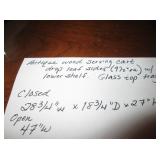 Antique wood serving cart
drop leaf sides (9½" ea) w/
lower shelf. Glass top tray
Closed
28¾" w x 18¾" D x 27" H
Open
47" w